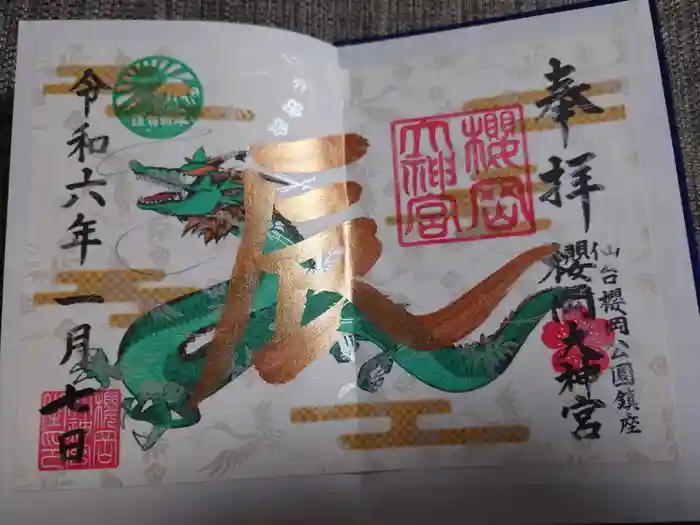 奉拝
仙台櫻岡公園鎮座
櫻岡大神宮
櫻岡
大神宮
辰
令和六年
一月七日